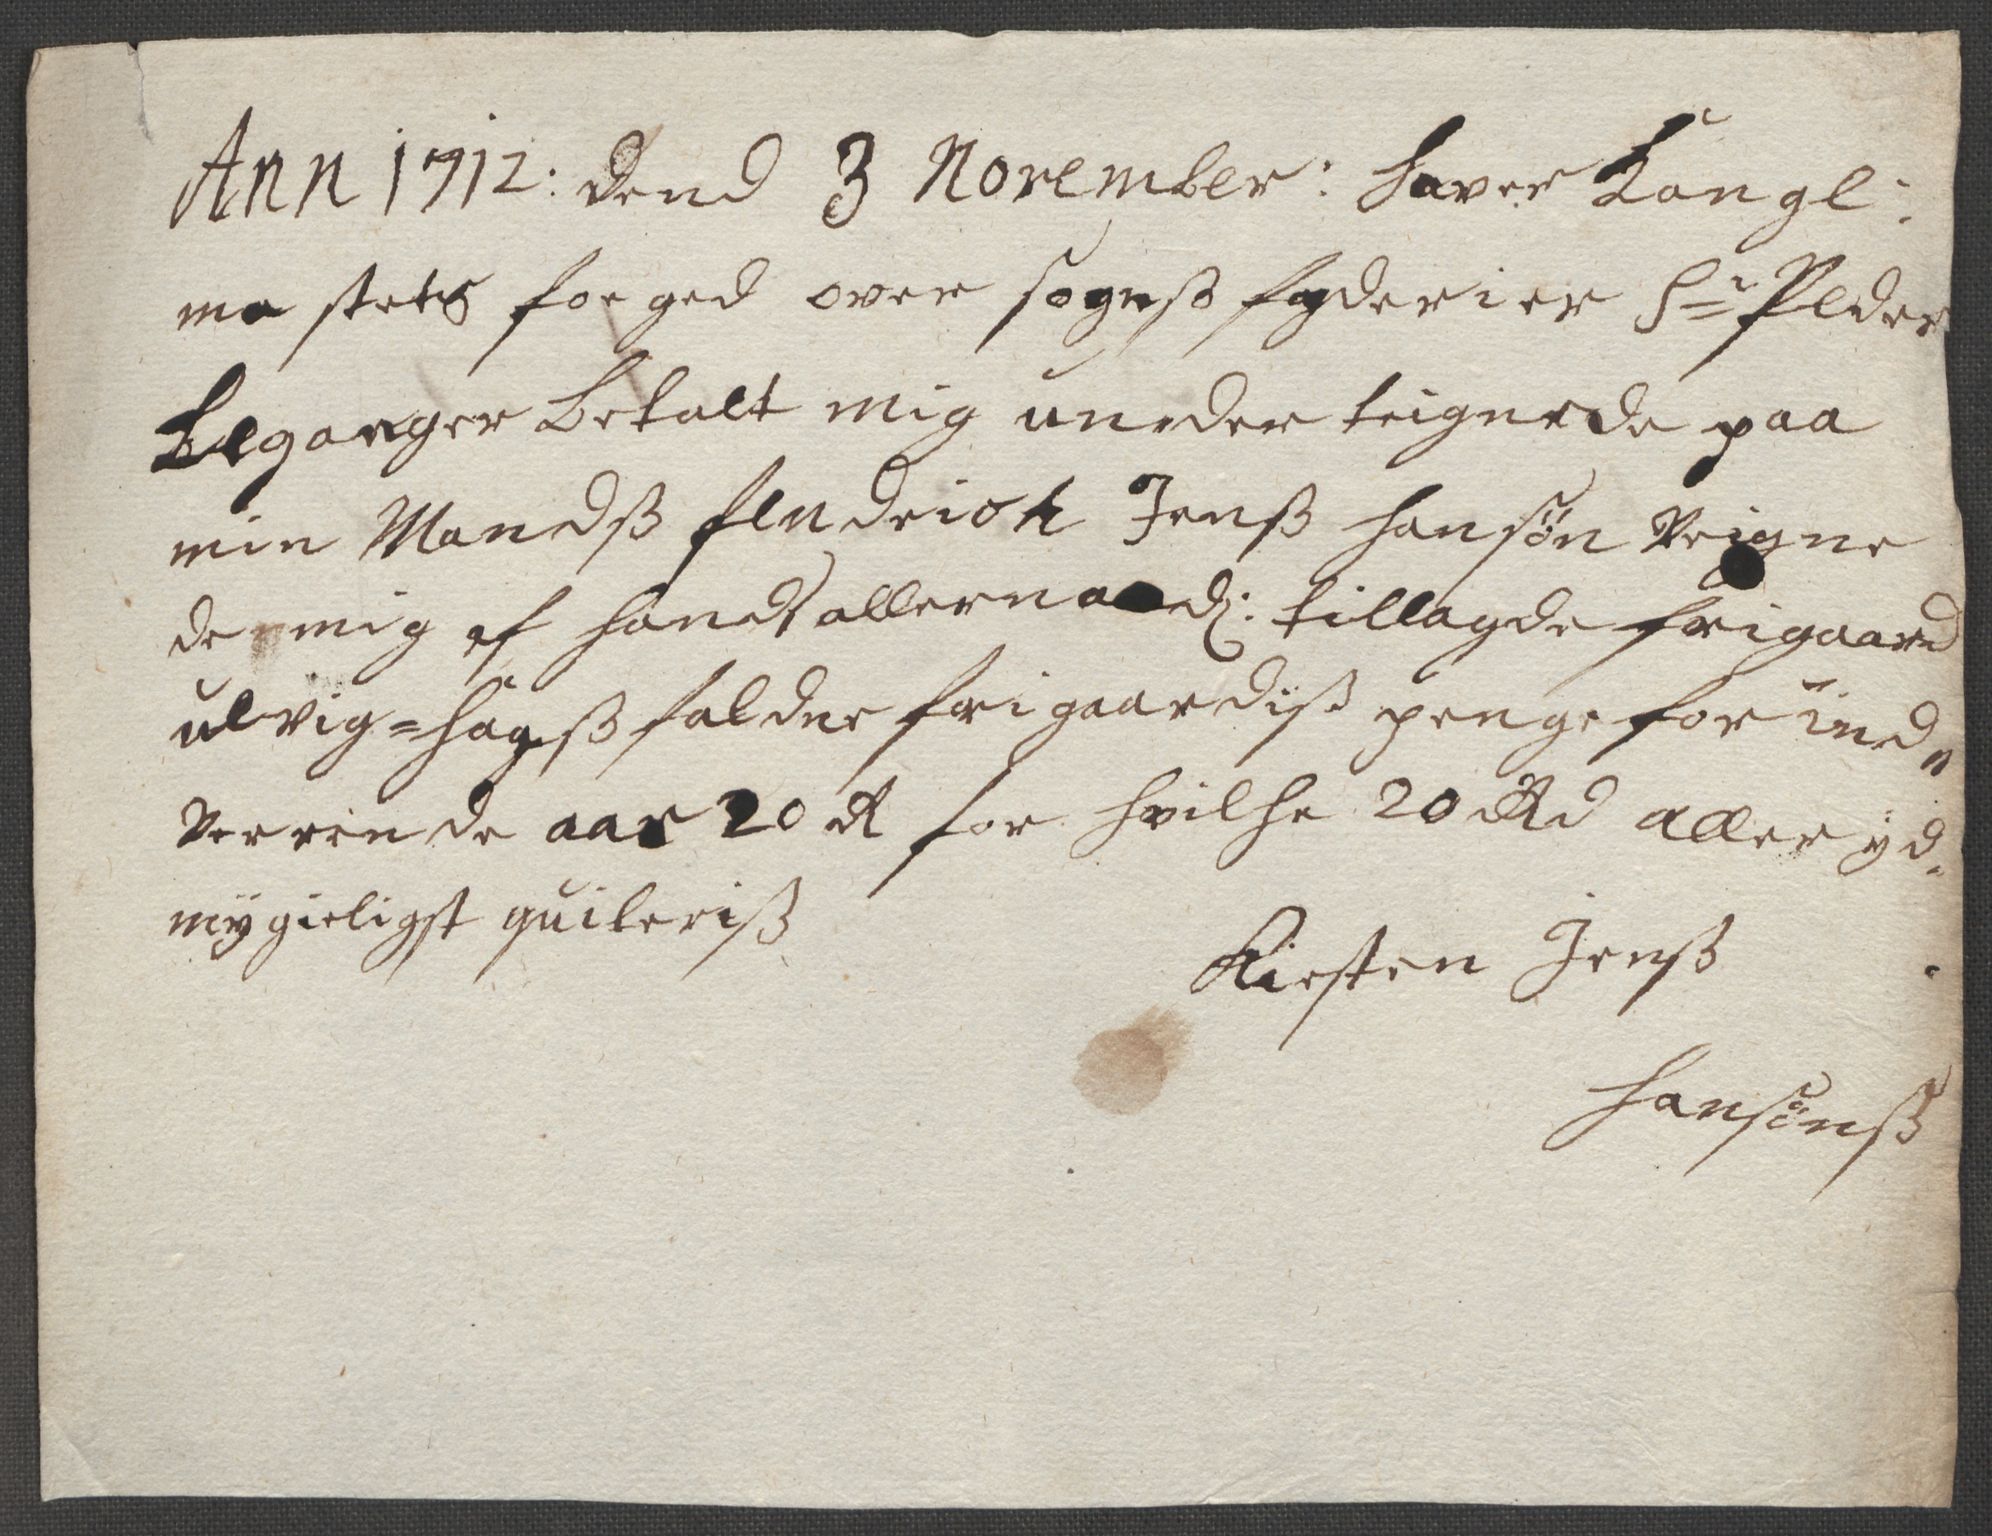 Ann 1712: dend 3 November: haver Kongl:
ma stets foeged over sogns fogderier Sr Peder
Leganger betalt mig under teignede paa
min Mandß fendrich Jenß hansøn Veigne
de mig af hands allernaad: tillagde frigaard
ulvig=hagß faldne frigaardiß penge for ind„
Verrende aar 20 dr for hvilche 20 Rd aller yd„
mÿgieligst quiteriß
Kiesten Jenß
hansønß